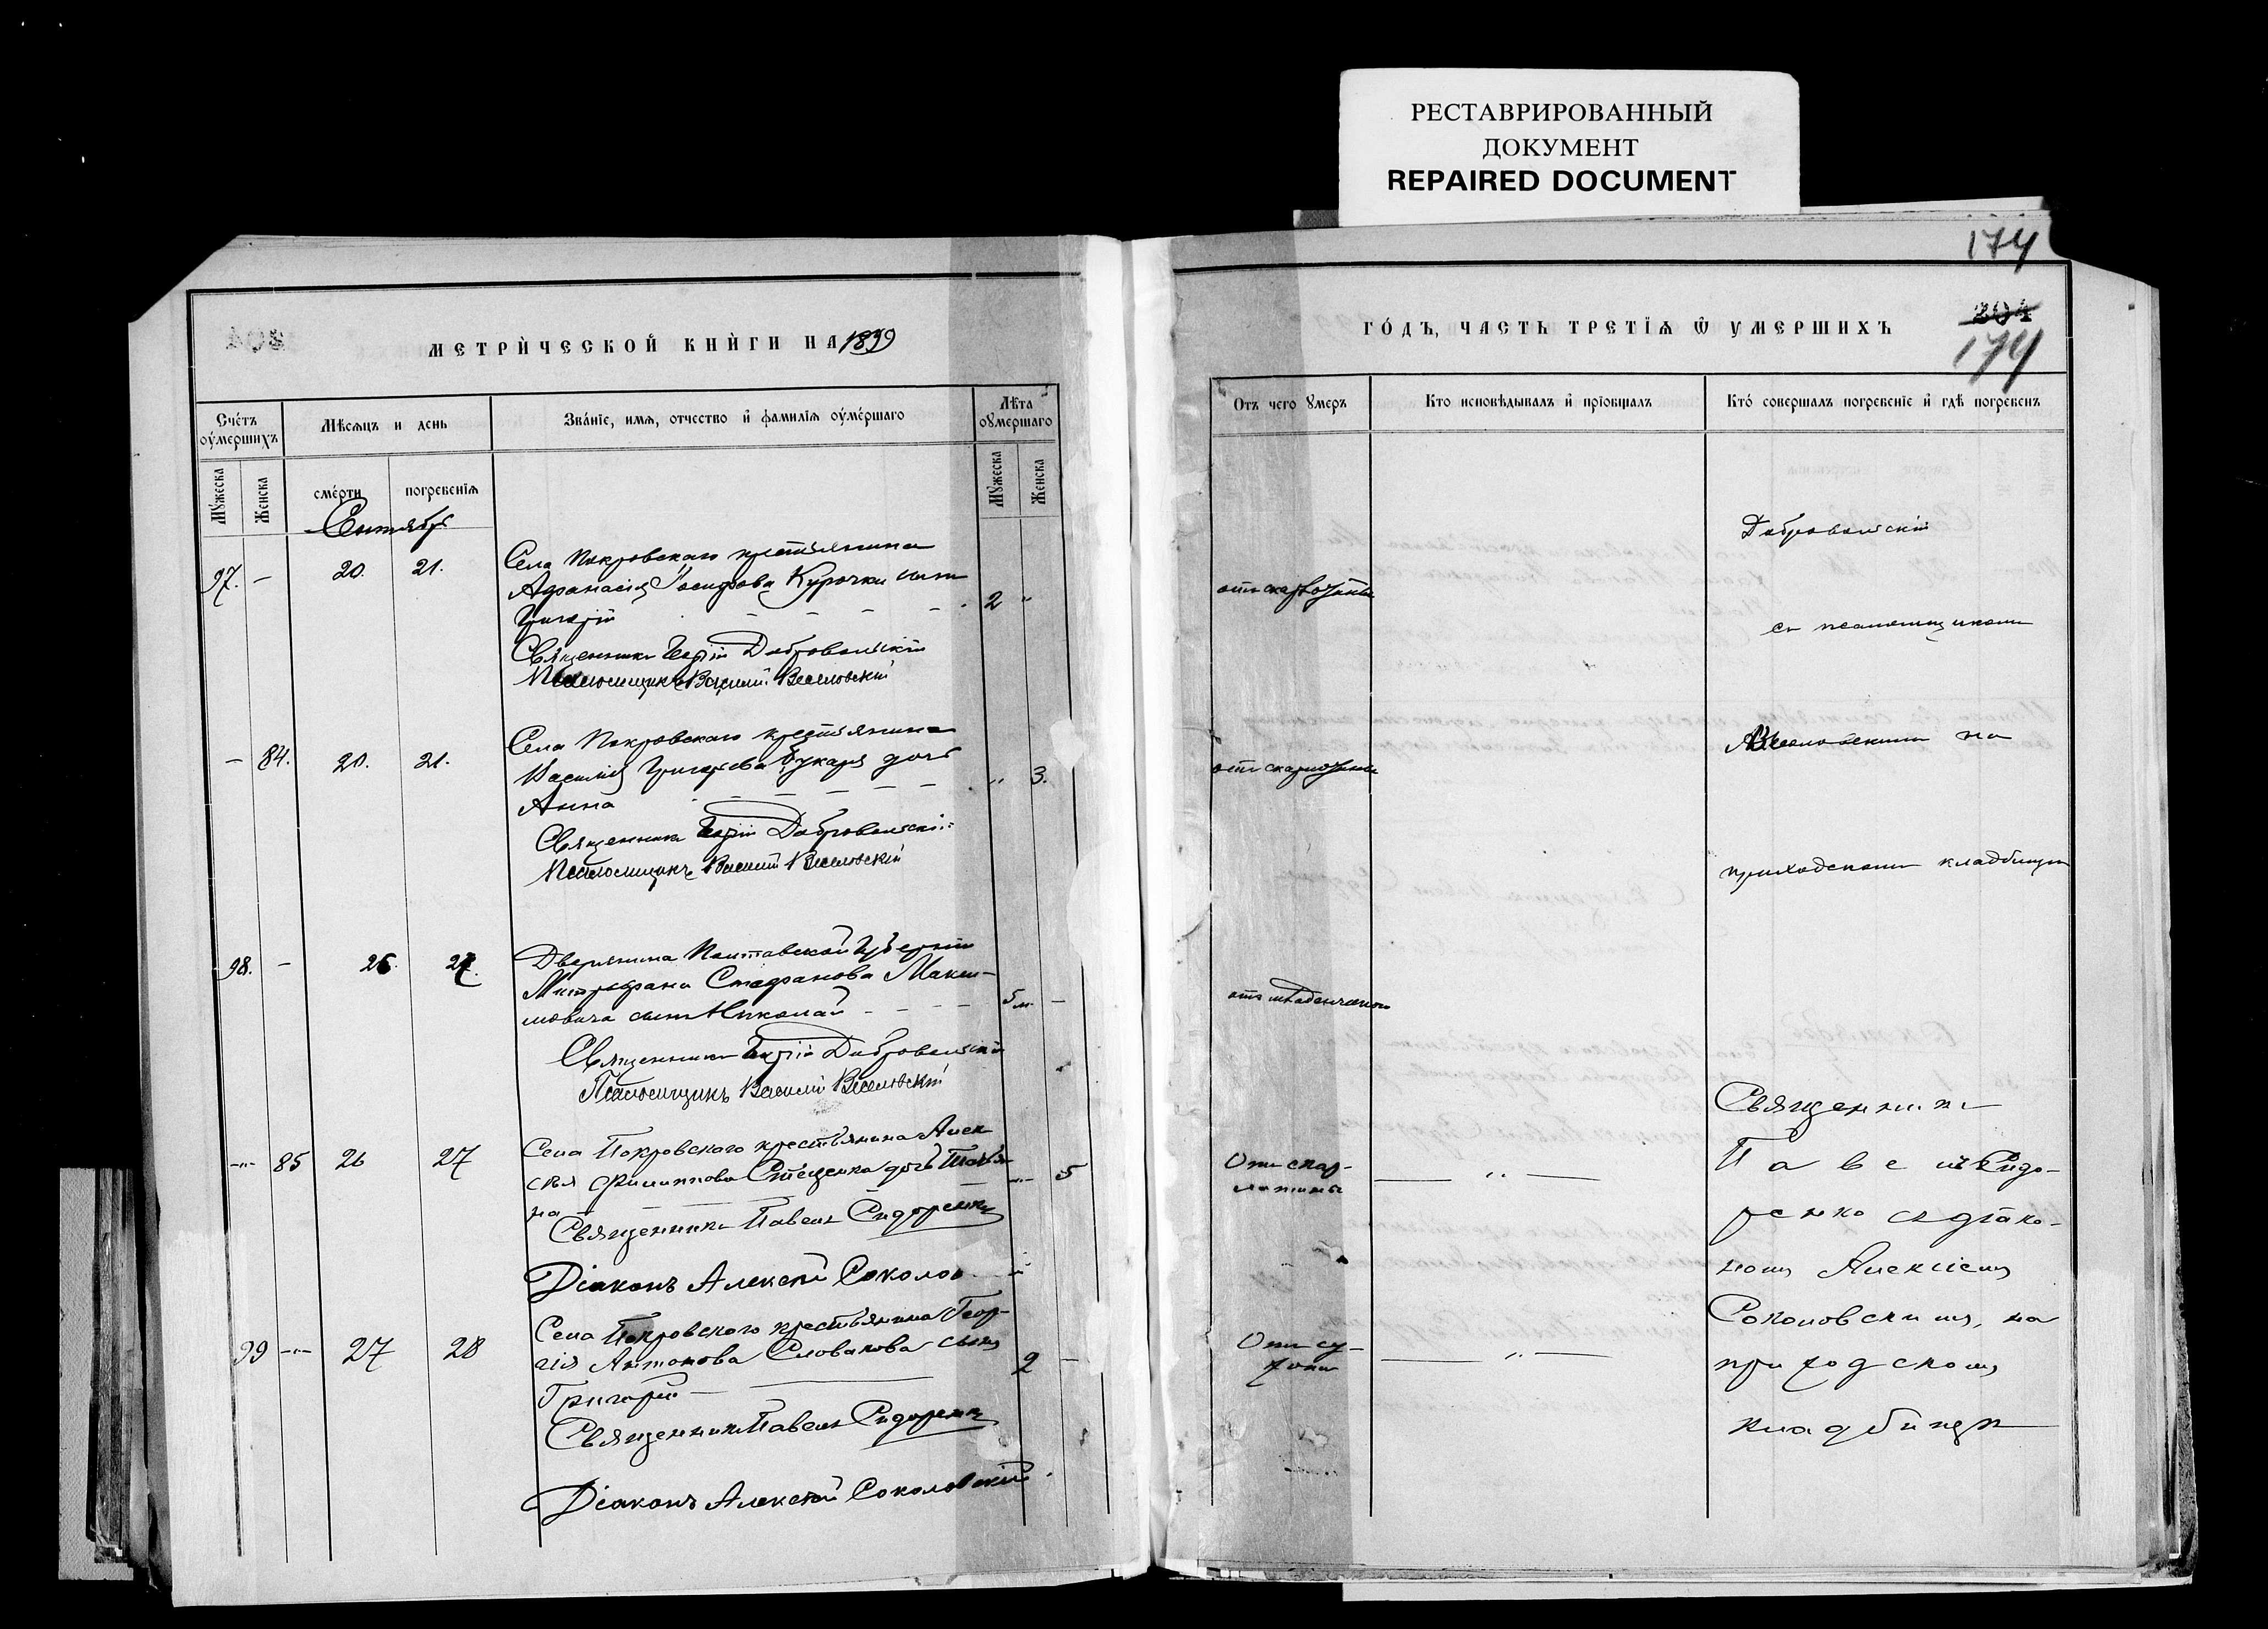 РЕСТАВРИРОВАННЫЙ
ДОКУМЕНТ
REPAIRED DOCUMENT
174
МЕТРИЧЕСКОЙ КНИГИ НА 1899
ГОДЪ, ЧАСТЬ ТРЕТІѦ Ѿ УМЕРШИХЪ
204
174
Счетъ оумершихъ
Мѣсяцъ и день
Званіе, имя, отчество и фамилія оумершаго
Лѣта оумершаго
Отъ чего умеръ
Кто исповѣдывалъ и пріобщалъ
Кто совершалъ погребеніе и гдѣ погребенъ
Мужеска
Женска
смерти
погребенія
Мужеска
Женска
Сентябрь
97. — 20. 21.
Села Покровскаго крестьянина
Афанасія Іосифова Курочки сынъ
Григорій
2 "
отъ скарлатины
Священникъ Георгій Добровольскій
Псаломщикъ Василій Веселовскій
Добровольскій
съ псаломщикомъ
— 84. 20. 21.
Села Покровскаго крестьянина
Василія Григорьева Букаря дочь
Анна
" 3.
отъ скарлатины
Священникъ Георгій Добровольскій
Псаломщикъ Василій Веселовскій
Веселовскимъ на
приходскомъ кладбищѣ
98. — 26. 27.
Дворянина Полтавской Губерніи
Митрофана Стефанова Макси-
мовича сынъ Николай
5 м. —
отъ младенческой
Священникъ Георгій Добровольскій
Псаломщикъ Василій Веселовскій
—"— 85 26 27
Села Покровского крестьянина Алек-
сѣя Филиппова Стеценка дочь Татья-
на
—"— 5
Отъ скар-
латины
— " —
Священникъ Павелъ Сидоренко
Діаконъ Алексій Соколов
99 —"— 27 28
Села Покровского крестьянина Геор-
гія Антонова Словакова сынъ
Григорій
2 —
Отъ су-
хоты
— " —
Священникъ Павелъ Сидоренко
Діаконъ Алексій Соколовскій
Священникъ
Павелъ Сидо-
ренко съ діако-
номъ Алексіемъ
Соколовскимъ, на
приходскомъ
кладбищѣ